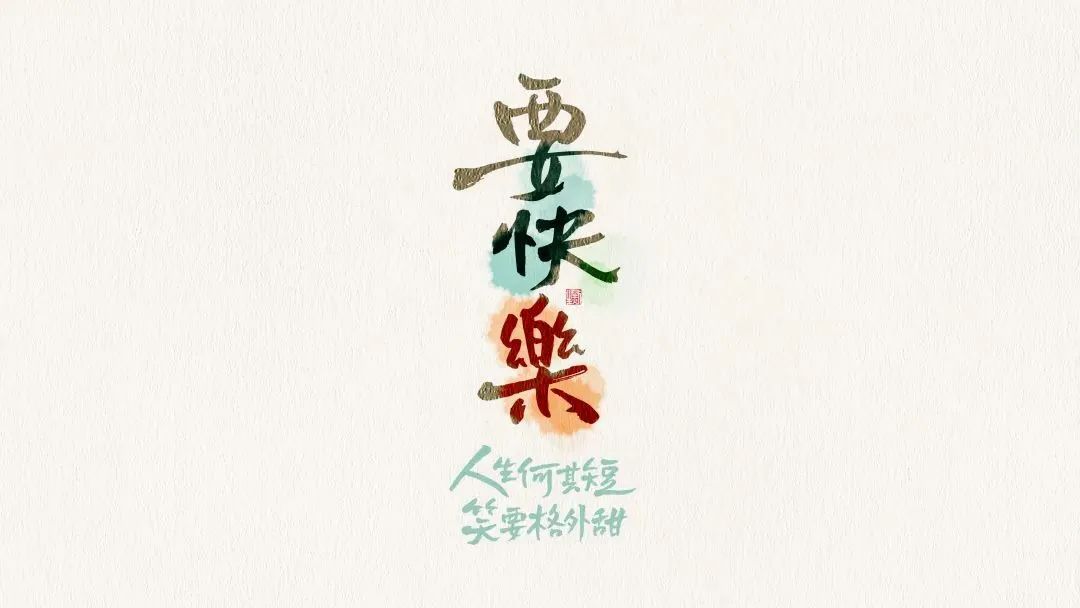 要快樂
人生何其短
笑要格外甜